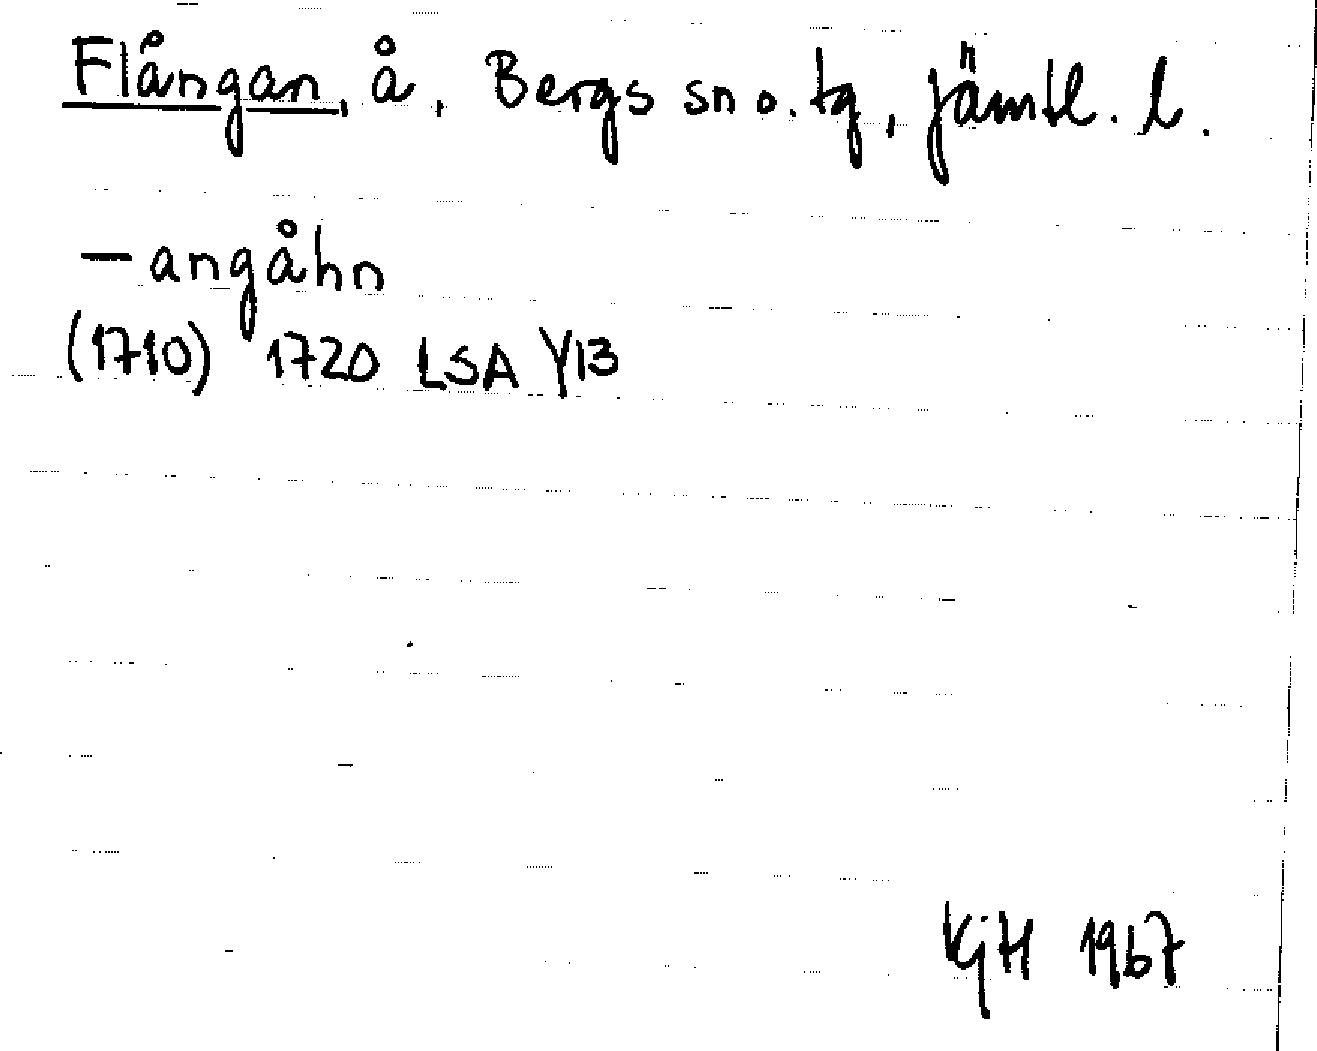 Flångan, å, Bergs sn o. tg, Jämtl. l.
– angåhn
(1710) 1720 LSA Y13
KjH 1967